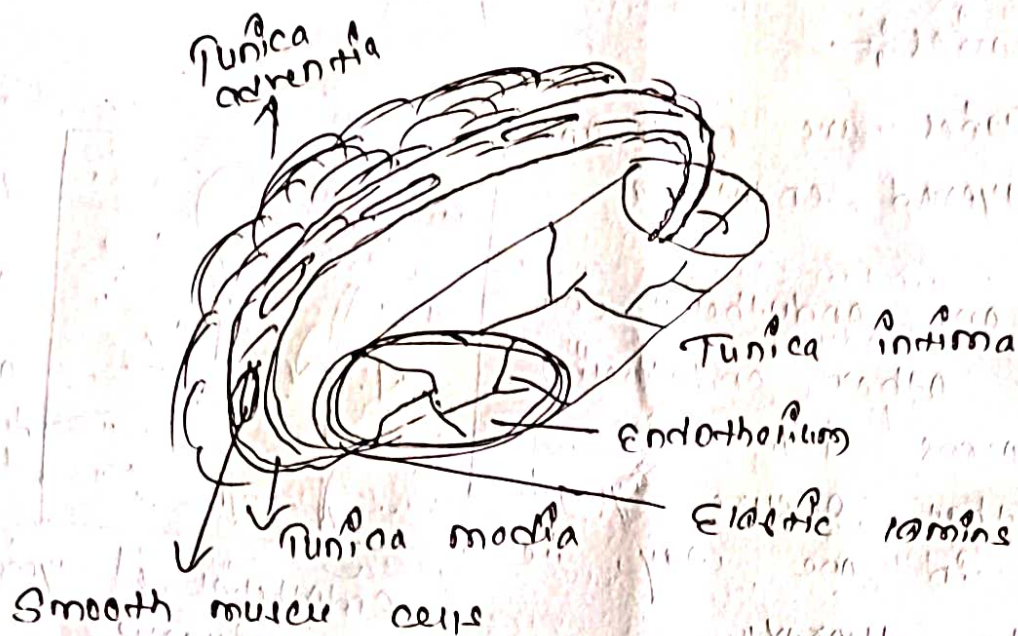 Tunica
adventia
Tunica intima
Endothelium
Elastic lamins
Tunica media
Smooth muscle cells